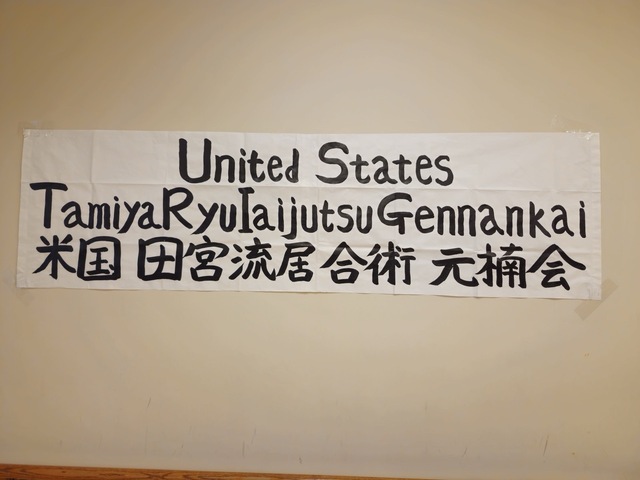 United States
Tamiya Ryu Iaijutsu Gennankai
米国 田宮流居合術 元楠会